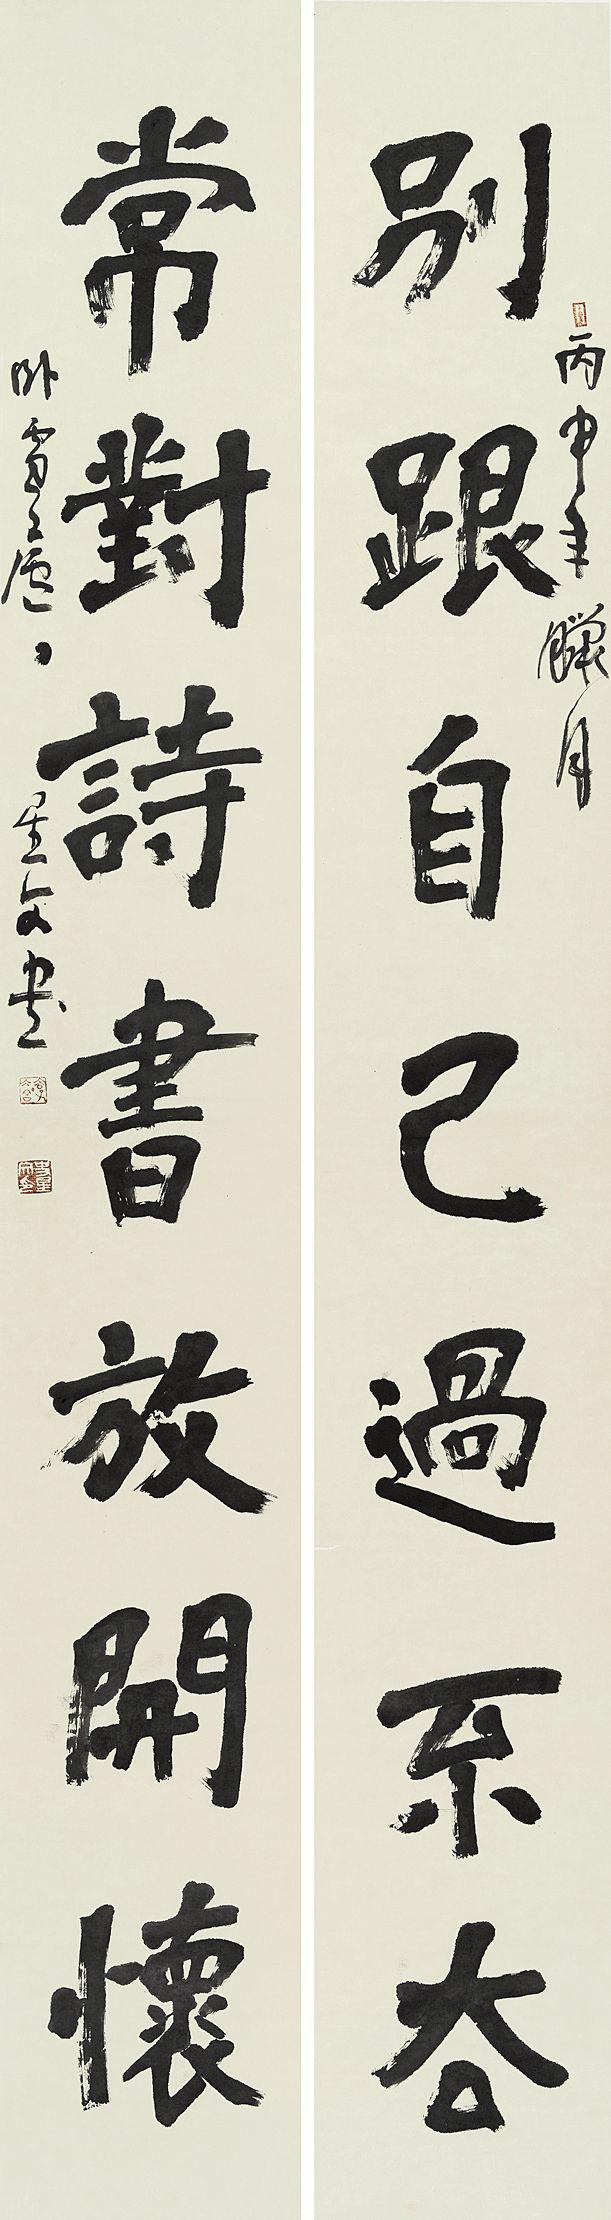 丙申年臘月
別跟自己過不去
常對詩書放開懷
卧雪之廬
星文書